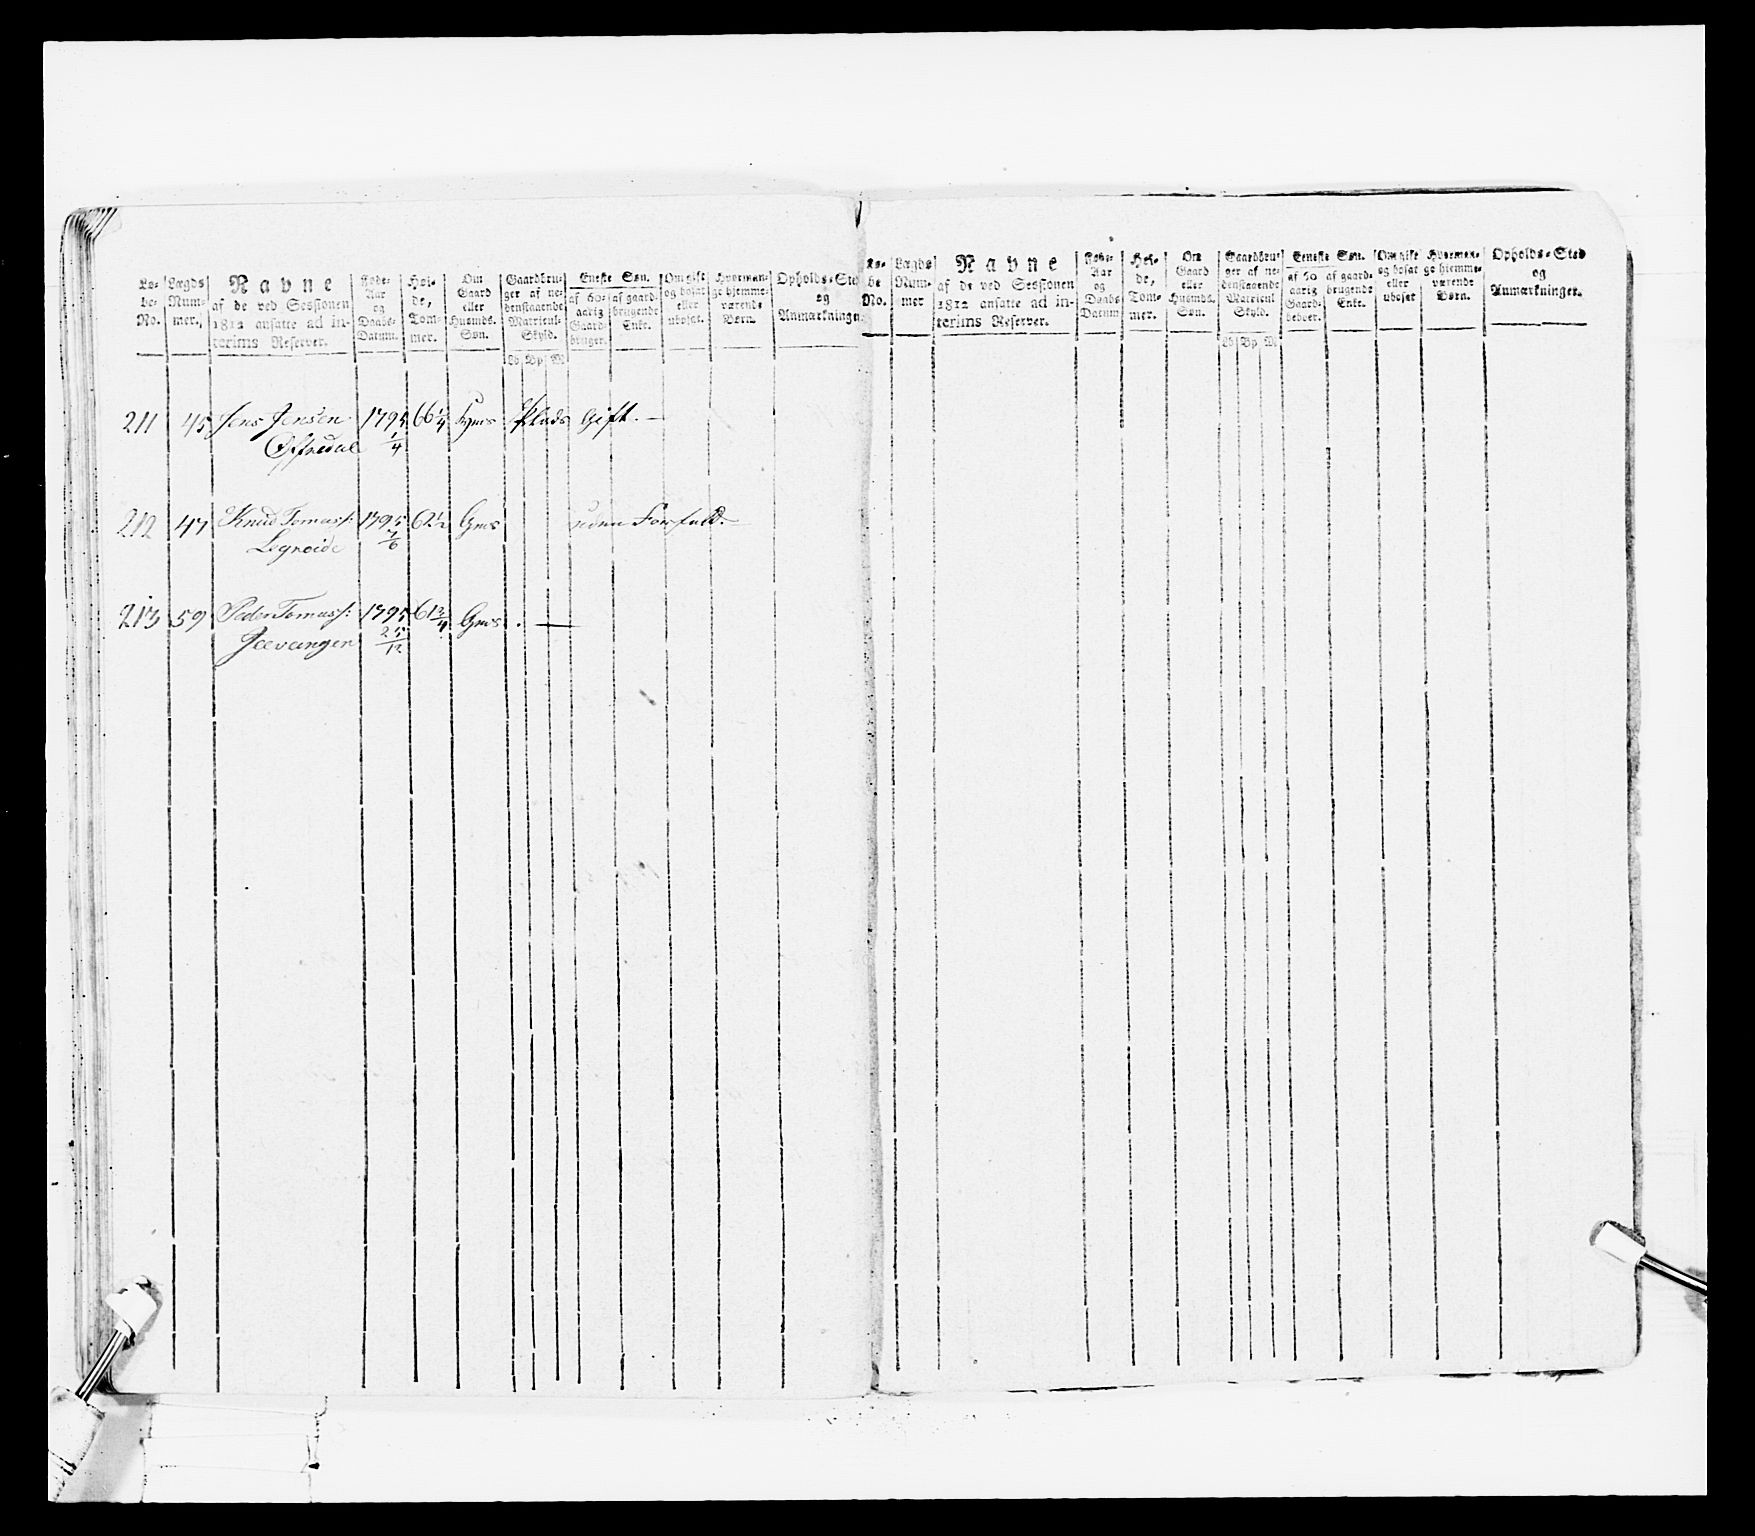 Lø-
be-
No.
Lægds
Num-
mer.
Navne
af de ved Sessionen
1812 ansatte ad in-
terims Reserver.
Føde-
Aar
og
Daabs-
Datum.
Høi-
de,
Tom-
mer.
Om
Gaard
eller
Huusmds.
Søn.
Gaardbru-
ger af ne-
denstaaende
Matricul-
Skyld.
Lb Bp M
Eneste Søn.
af 60-
aarig
Gaard-
bruger.
af gaard-
brugende
Enke.
Om gift
og bosat
eller
ubosat.
Hvorman-
ge hjemme-
værende
Børn.
Opholds-Sted
og
Anmærkninger.
211 45 Jens Jensen 1795 66 1/4 Hms Plads Gift. —
Offredal 1/4
212 47 Knud Tomass: 1795 62 1/2 Gms uden Forfald.
7/6
213 59 Peder Tomass: 1795 61 3/4 Gms . —
25/12
Lø-
be
No.
Lægds
Num-
mer
Navne
af de ved Sessionen
1812 ansatte ad in-
terims Reserver.
Føde-
Aar
og
Daabs-
Datum
Høi-
de,
Tom-
mer.
Om
Gaard
eller
Huusmds.
Søn.
Gaardbru-
ger af ne-
denstaaende
Matricul
Skyld.
Lb Bp M
Eeneste Søn.
af 50
aarig
Gaard-
beboer.
af gaard-
brugende
Enke.
Om gift
og bosat
eller
ubosat
Hvorman-
ge hjemme-
værende
Børn.
Opholds-Sted
og
Anmærkninger.